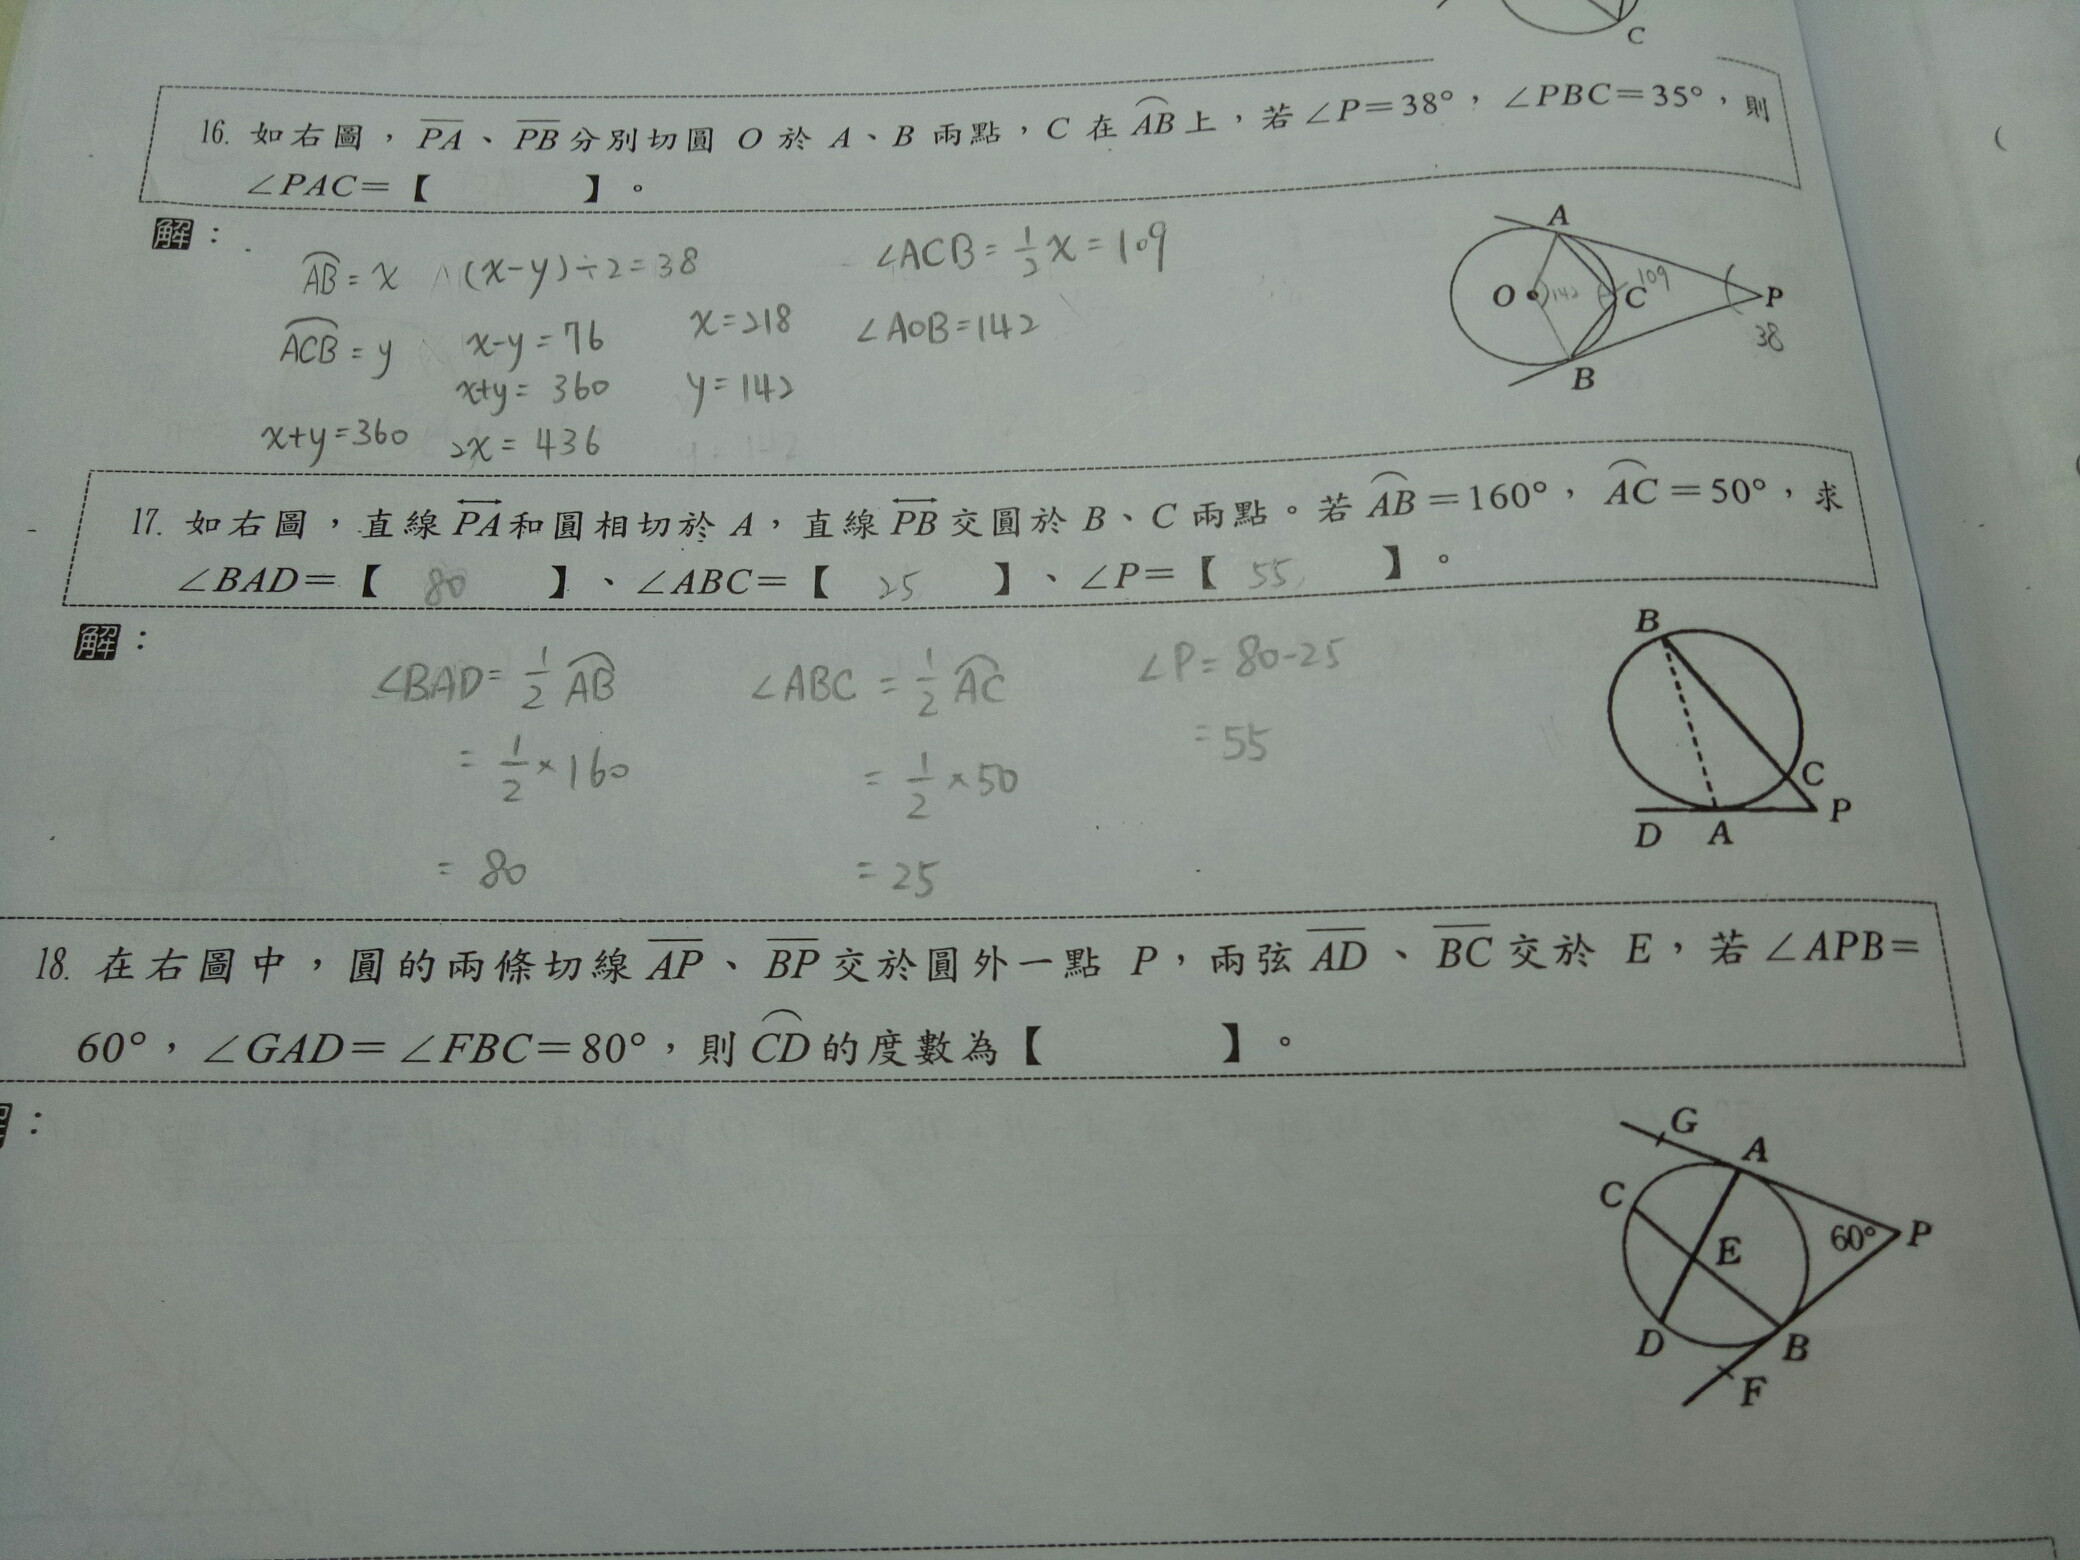 C
16. 如右圖，PA、PB分別切圓 O 於 A、B 兩點，C 在 AB上，若∠P=38°，∠PBC=35°，則
∠PAC=【　　】。
解：
AB = x　(x-y)÷2=38　∠ACB= 1/2 x = 109
ACB = y　x-y=76　x=218　∠AOB=142
x+y=360　y=142
x+y=360　2x=436
A
O 142 C 109 P
38
B
17. 如右圖，直線PA和圓相切於 A，直線PB交圓於 B、C 兩點。若AB=160°，AC=50°，求
∠BAD=【 80 】、∠ABC=【 25 】、∠P=【 55 】。
解：
∠BAD= 1/2 AB　∠ABC = 1/2 AC　∠P= 80-25
= 1/2 ×160　= 1/2 ×50　=55
= 80　= 25
B
C
P
D A
18. 在右圖中，圓的兩條切線AP、BP交於圓外一點 P，兩弦AD、BC交於 E，若∠APB=
60°，∠GAD=∠FBC=80°，則CD的度數為【　　】。
：
G
A
C
E 60° P
D B
F